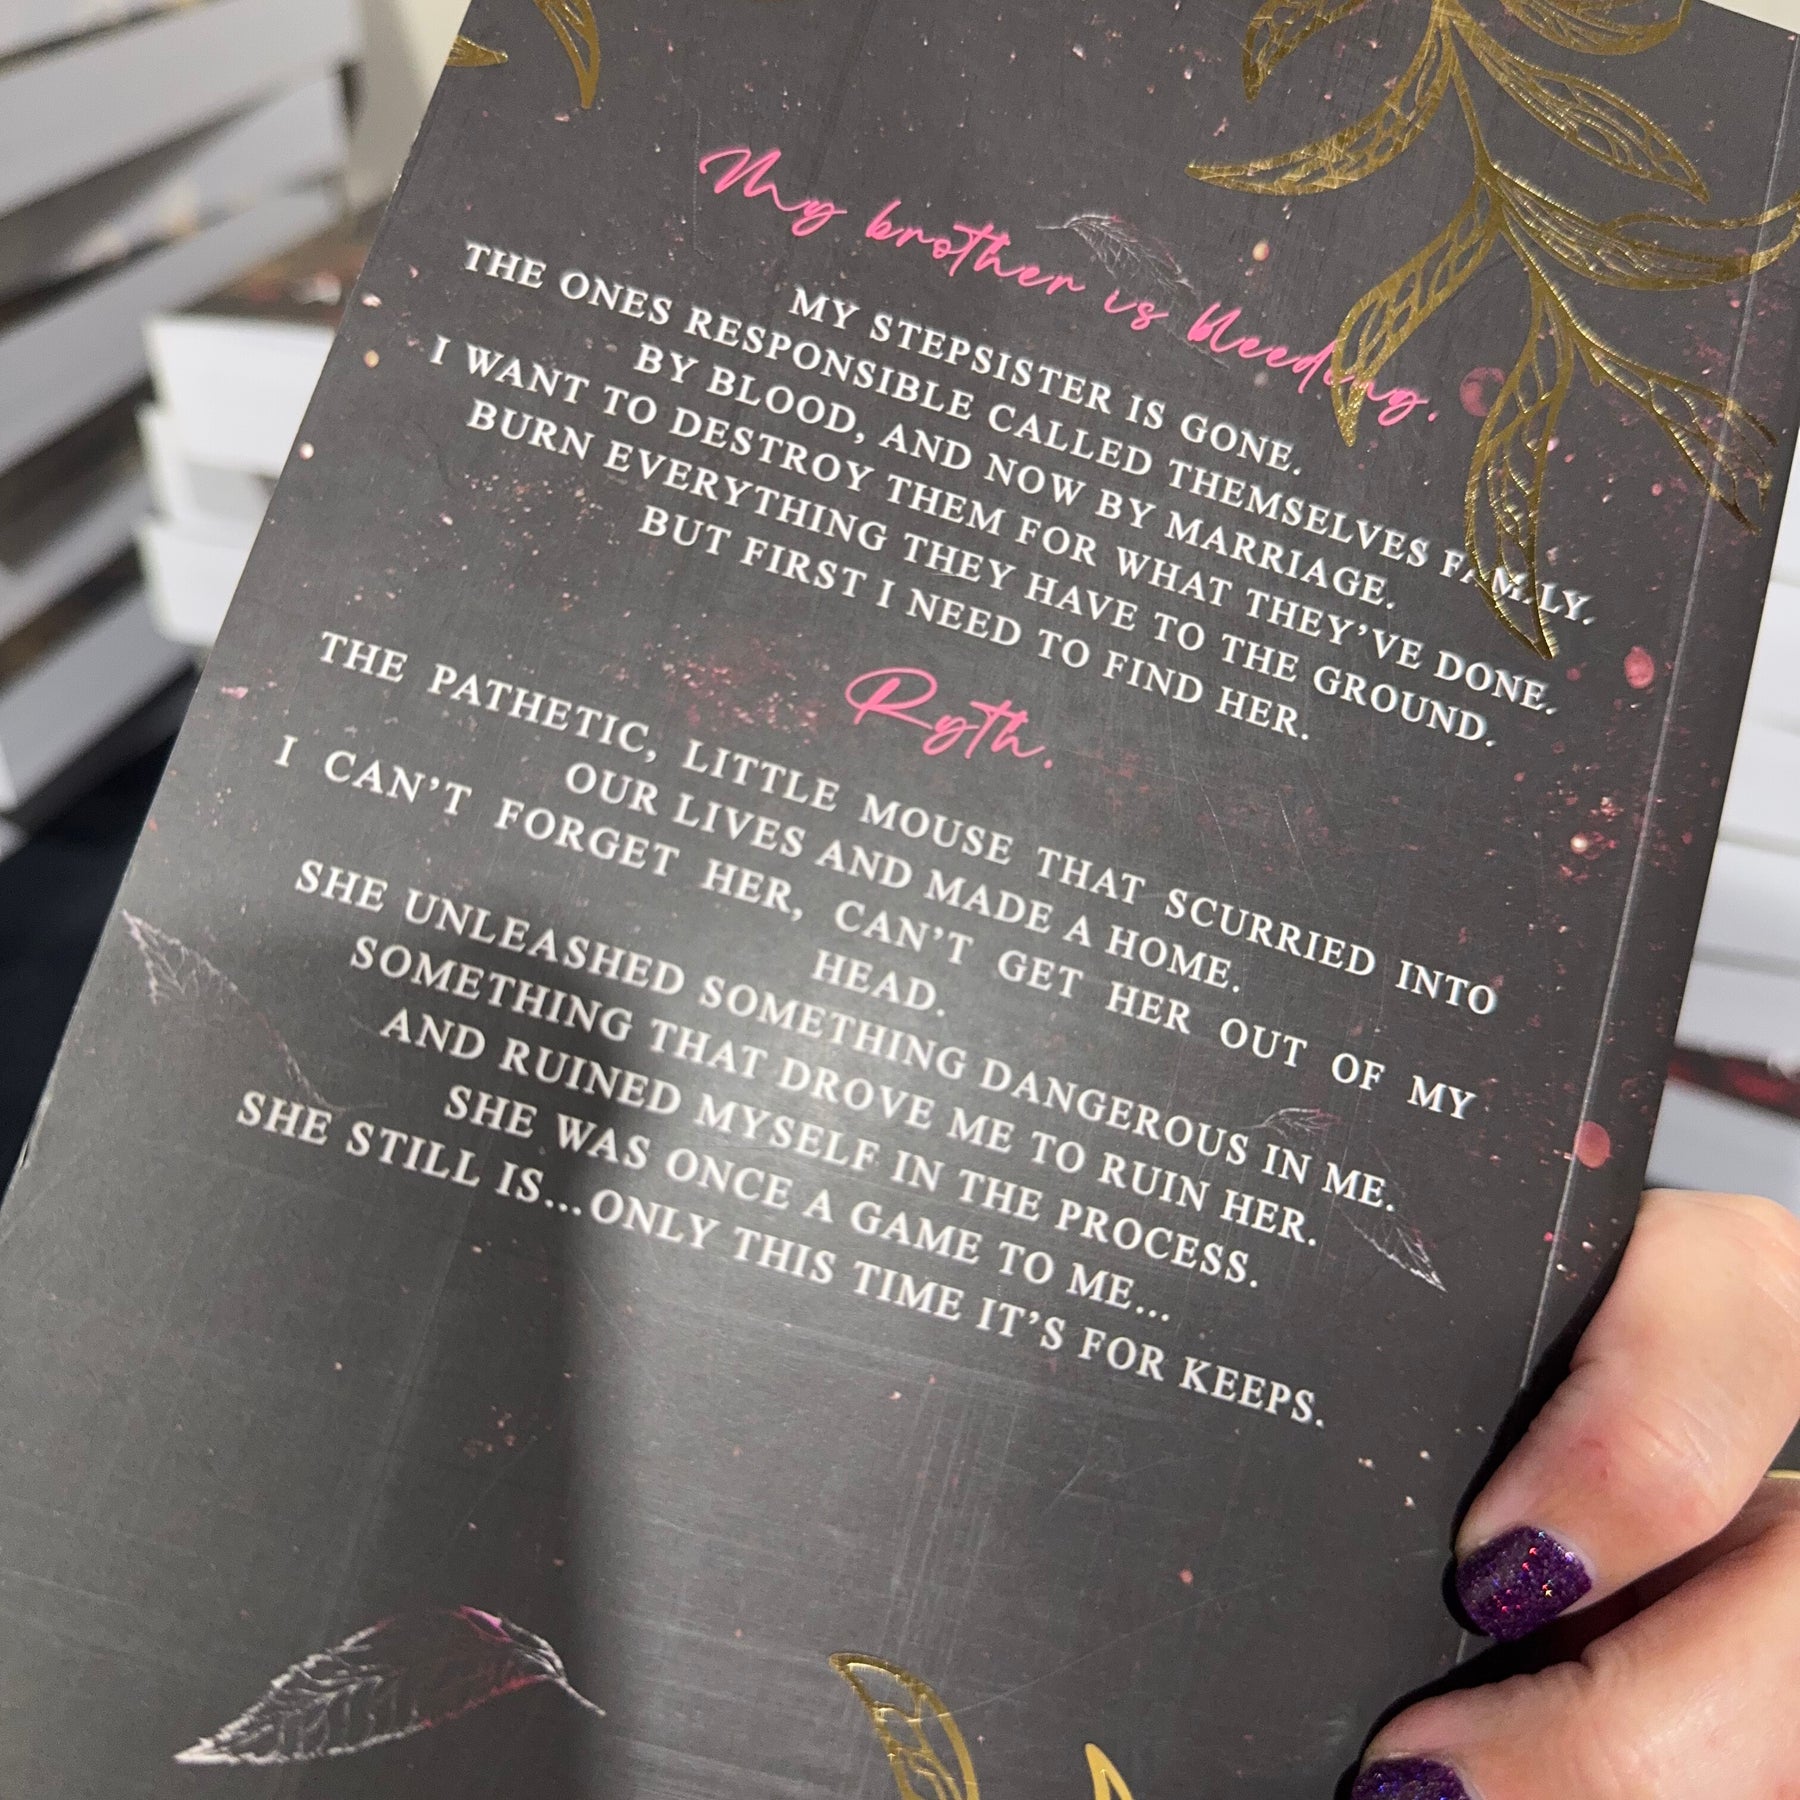 My brother is bleeding.
MY STEPSISTER IS GONE.
THE ONES RESPONSIBLE CALLED THEMSELVES FAMILY.
BY BLOOD, AND NOW BY MARRIAGE.
I WANT TO DESTROY THEM FOR WHAT THEY'VE DONE.
BURN EVERYTHING THEY HAVE TO THE GROUND.
BUT FIRST I NEED TO FIND HER.
Ryth.
THE PATHETIC, LITTLE MOUSE THAT SCURRIED INTO
OUR LIVES AND MADE A HOME.
I CAN'T FORGET HER, CAN'T GET HER OUT OF MY
HEAD.
SHE UNLEASHED SOMETHING DANGEROUS IN ME.
SOMETHING THAT DROVE ME TO RUIN HER.
AND RUINED MYSELF IN THE PROCESS.
SHE WAS ONCE A GAME TO ME...
SHE STILL IS...ONLY THIS TIME IT'S FOR KEEPS.